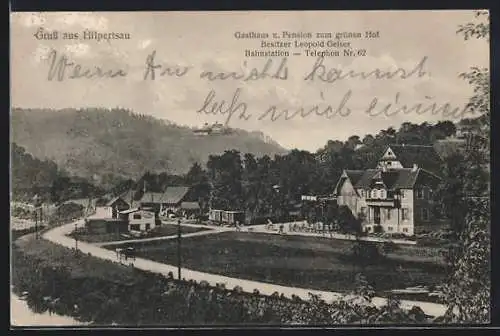 Gruß aus Hilpertsau
Gasthaus u. Pension zum grünen Hof
Besitzer Leopold Geiser
Bahnstation — Telephon Nr. 62
Wenn du nicht kommst
laß mich einmal